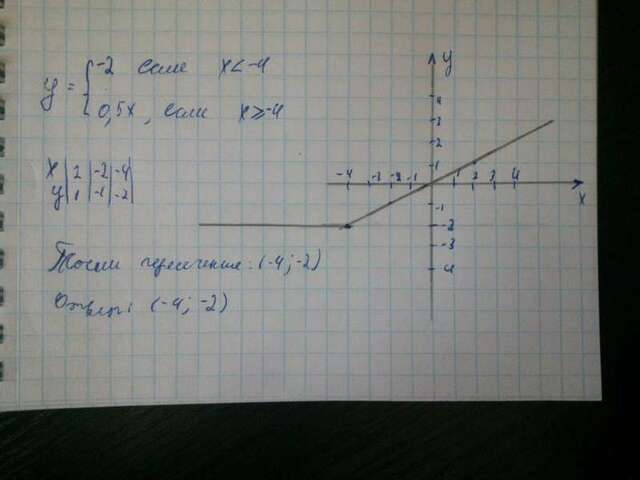 y = { -2 если x < -4
0,5x, если x ≥ -4
x | 2 | -2 | -4 |
y | 1 | -1 | -2 |
Точки пересечения: (-4; -2)
Ответ: (-4; -2)
y
4
3
2
1
-4 -3 -2 -1 1 2 3 4
x
-1
-2
-3
-4